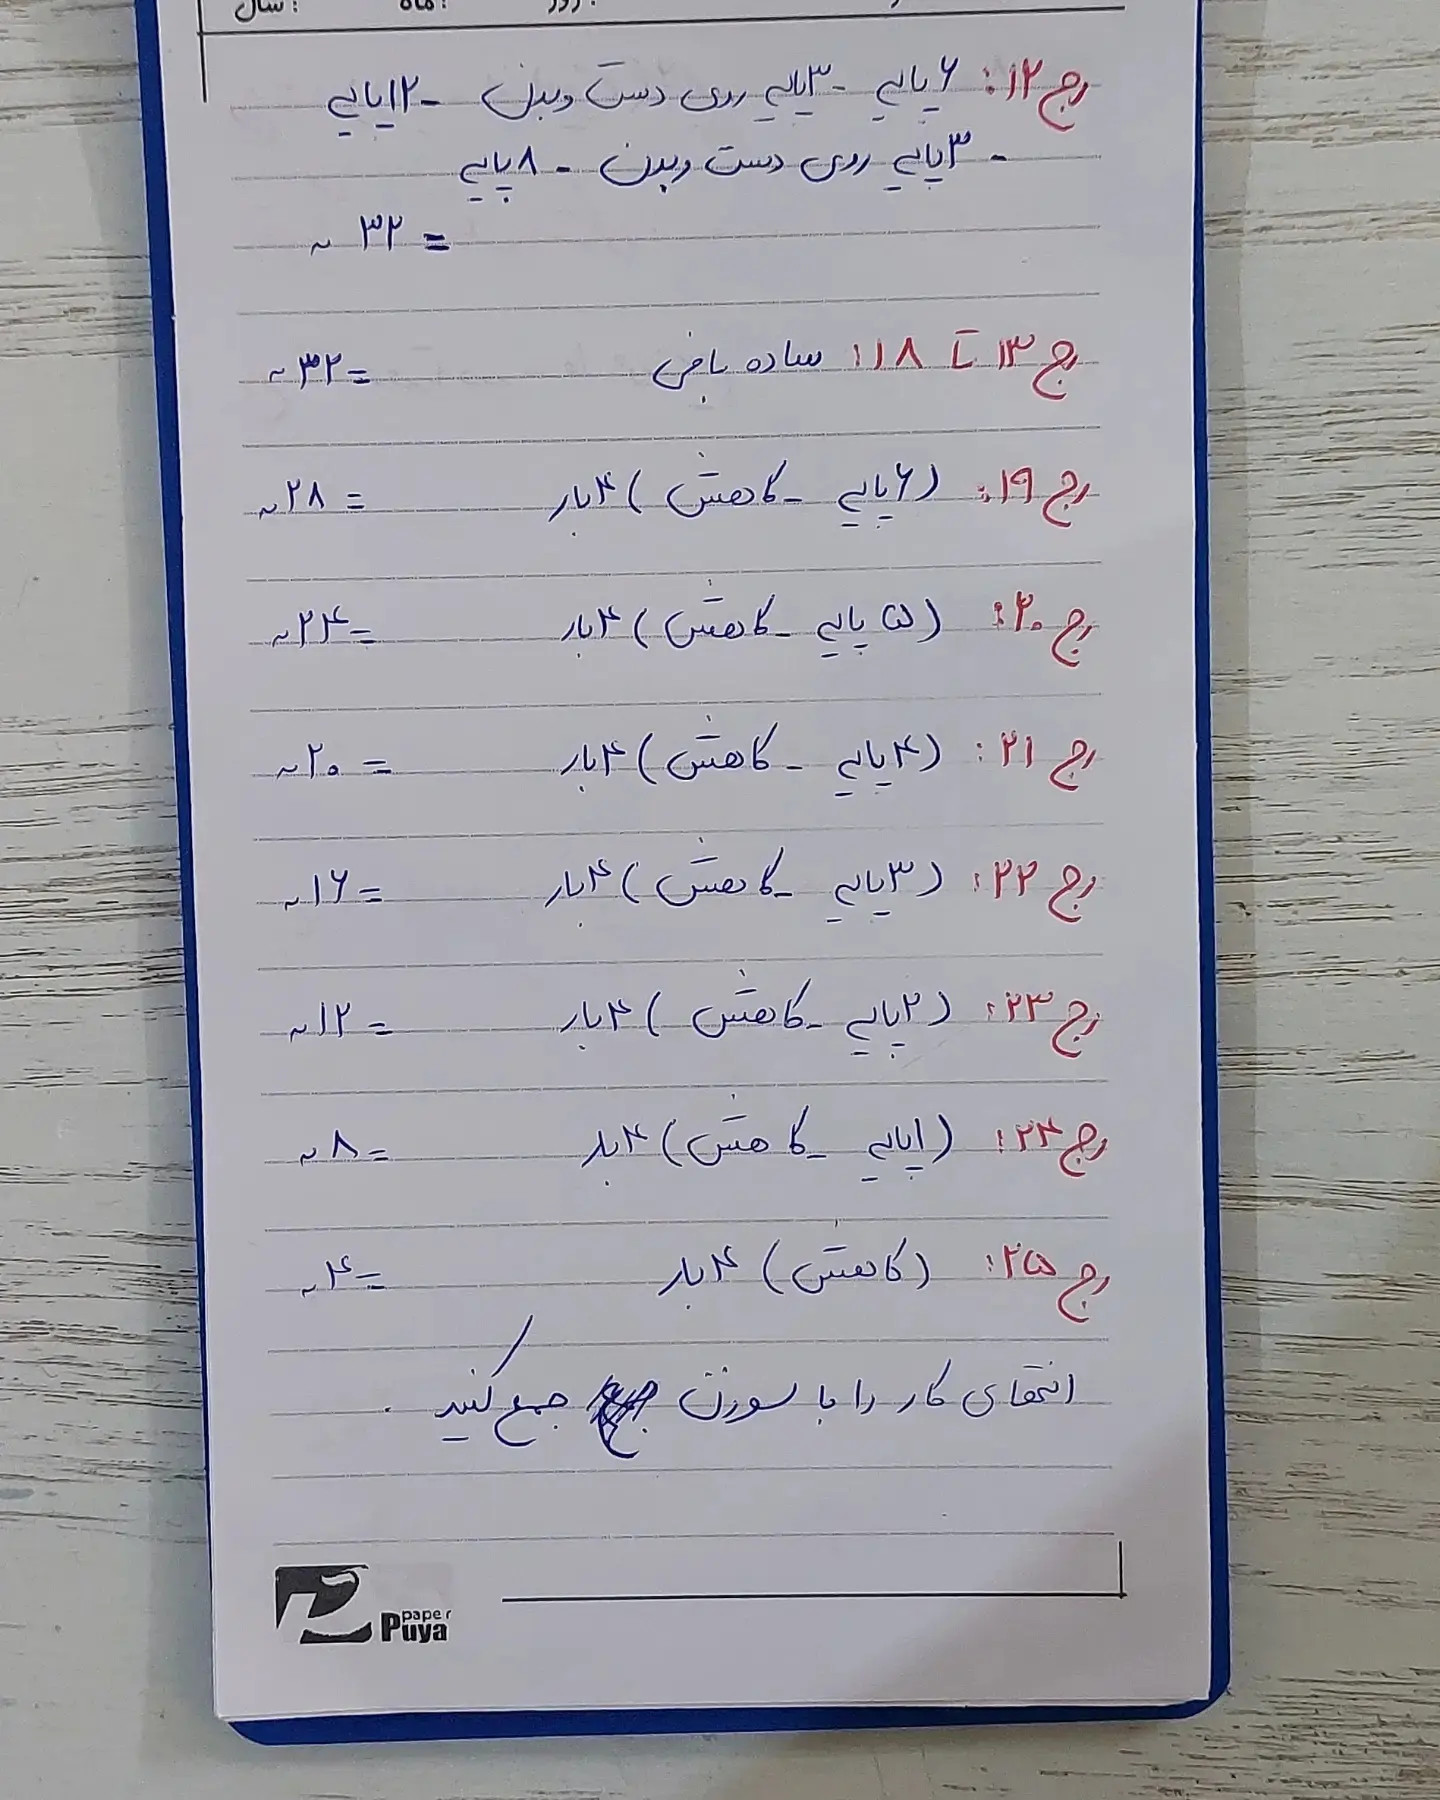 روز: ماه: سال:
رج ۱۲: ۶ پایه - ۳ پایه روی دست و بدن - ۱۲ پایه
- ۳ پایه روی دست و بدن - ۸ پایه
= ۳۲ ~
رج ۱۳ تا ۱۸: ساده بافی = ۳۲ ~
رج ۱۹: (۶ پایه - کاهش) ۴ بار = ۲۸ ~
رج ۲۰: (۵ پایه - کاهش) ۴ بار = ۲۴ ~
رج ۲۱: (۴ پایه - کاهش) ۴ بار = ۲۰ ~
رج ۲۲: (۳ پایه - کاهش) ۴ بار = ۱۶ ~
رج ۲۳: (۲ پایه - کاهش) ۴ بار = ۱۲ ~
رج ۲۴: (۱ پایه - کاهش) ۴ بار = ۸ ~
رج ۲۵: (کاهش) ۴ بار = ۴ ~
انتهای کار را با سوزن جمع کنید .
paper
Puya